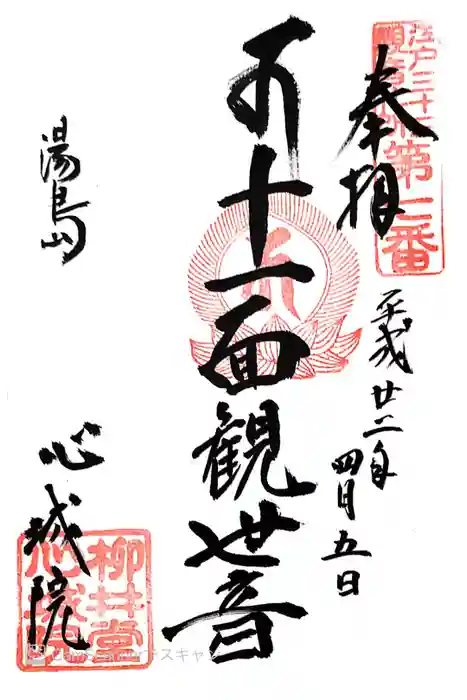 江戸三十三
観音札所第二番
奉拝
平成廿二年
四月五日
十一面観世音
湯島山
心城院
柳井堂
心城院